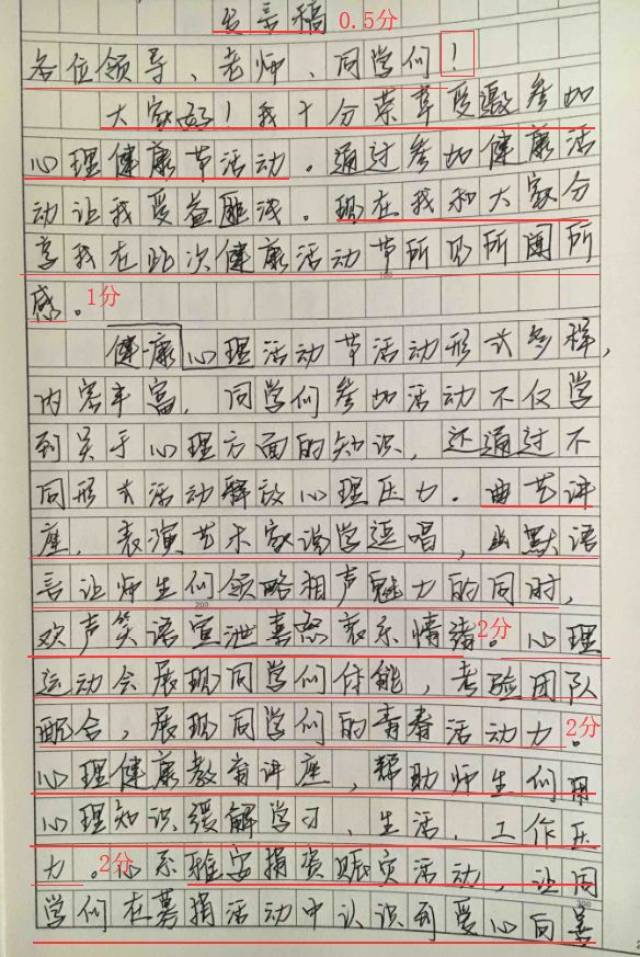 发言稿 0.5分
各位领导、老师、同学们!
大家好!我十分荣幸受邀参加
心理健康节活动。通过参加健康活
动让我受益匪浅。现在我和大家分
享我在此次健康活动节所见所闻所
感。1分
健康心理活动节活动形式多样,
内容丰富,同学们参加活动不仅学
到关于心理方面的知识,还通过不
同形式活动释放心理压力。曲艺讲
座,表演艺术家说学逗唱,幽默语
言让师生们领略相声魅力的同时,
欢声笑语宣泄喜怒哀乐情绪。2分 心理
运动会展现同学们体能,考验团队
配合,展现同学们的青春活动力。2分
心理健康教育讲座,帮助师生们用
心理知识缓解学习、生活、工作压
力。2分 心系雅安捐资赈灾活动,让同
学们在募捐活动中认识到爱心向善